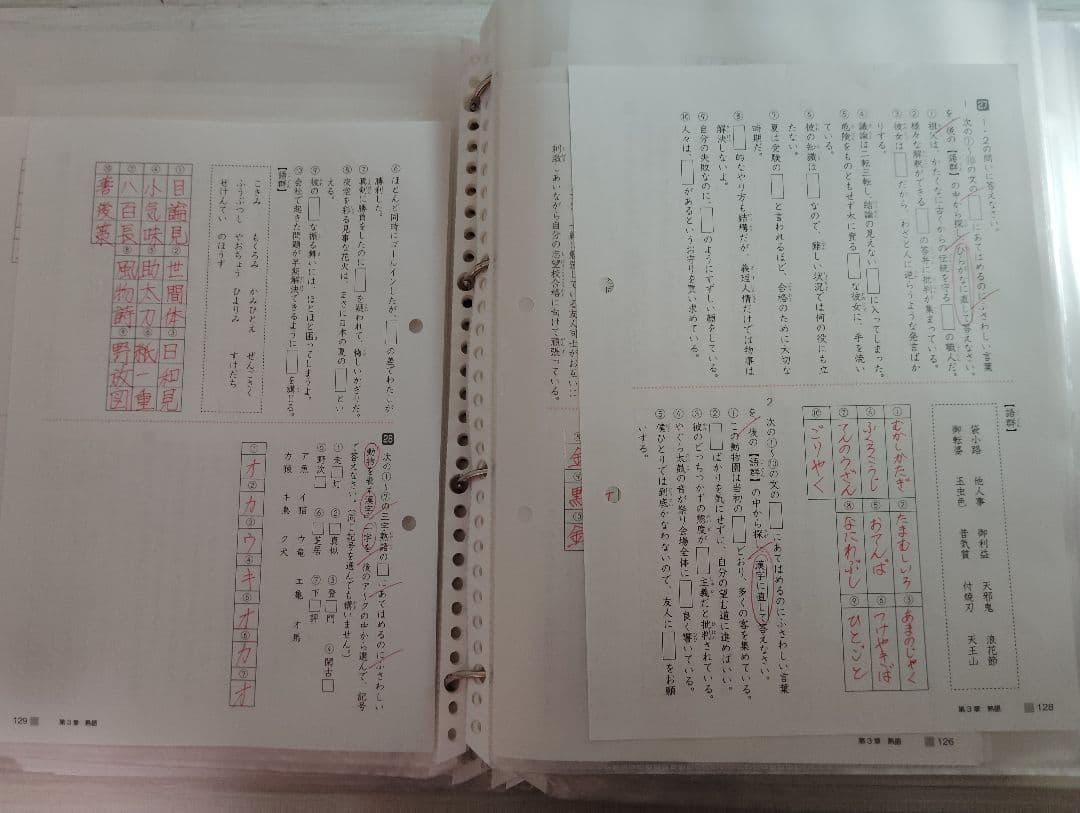 27
1・2の問いに答えなさい。
1 次の①〜⑩の文の□にあてはめるのにふさわしい言葉
を、後の【語群】の中から探し、ひらがなに直して答えなさい。
① 祖父は、かたくなに古くからの伝統を守る□の職人だ。
② 様々な解釈ができる□の答弁に批判が集まっている。
③ 彼女は□だから、わざと人に逆らうような発言ばか
りする。
④ 議論は二転三転し、結論の見えない□に入ってしまった。
⑤ 危険をものともせず木に登る□な彼女に、手を洗い
ている。
⑥ 彼の知識は□なので、難しい状況では何の役にも立
たない。
⑦ 夏は受験の□と言われるほど、合格のために大切な
時期だ。
⑧ □的なやり方も結構だが、義理人情だけでは物事は
解決しないよ。
⑨ 自分の失敗なのに、□のようにすずしい顔をしている。
⑩ 人々は、□があるというお守りを買い求めている。
【語群】
袋小路 他人事 御利益 天邪鬼 浪花節
御転婆 玉虫色 昔気質 付焼刃 天王山
① むかしかたぎ
② たまむしいろ
③ あまのじゃく
④ ふくろこうじ
⑤ おてんば
⑥ つけやきば
⑦ てんのうざん
⑧ なにわぶし
⑨ ひとごと
⑩ ごりやく
2 次の①〜⑩の文の□にあてはめるのにふさわしい言葉
を、後の【語群】の中から探し、漢字に直して答えなさい。
① この動物園は当初の□どおり、多くの客を集めている。
② □ばかりを気にせずに、自分の望む道に進めばいい。
③ 彼のどっちつかずの態度が□主義だと批判されている。
④ やぐら太鼓の音が祭り会場全体に□良く響いている。
⑤ 僕ひとりでは到底かなわないので、友人に□をお願
いする。
第3章 熟語 128
第3章 熟語 126
刺激しあいながら自分の志望校合格に向けて頑張っている。
⑥ ほとんど同時にゴールインしたが、□の差でわたしが
勝利した。
⑦ 真剣に勝負をしたのに□を疑われて、悔しいかぎりだ。
⑧ 夜空を彩る見事な花火は、まさに日本の夏の□とい
える。
⑨ 彼の□な振る舞いには、ほとほと困ってしまうよ。
⑩ 会社で起きた問題が早期解決できるように□を講じる。
【語群】
こきみ もくろみ かみひとえ ぜんごさく
ふうぶつし やおちょう ひよりみ すけだち
せけんてい のほうず
① 目論見
② 世間体
③ 日和見
④ 小気味
⑤ 助太刀
⑥ 紙一重
⑦ 八百長
⑧ 風物詩
⑨ 野放図
⑩ 善後策
28
次の①〜⑦の三字熟語の□にあてはめるのにふさわしい
動物を表す漢字一字を、後のア〜クの中から選んで、記号
で答えなさい。(同じ記号を選んでも構いません。)
① 走□灯 ② □真似 ③ 登□門 ④ 閑古□
⑤ 野次□ ⑥ □芝居 ⑦ 下□評
ア 魚 イ 猫 ウ 竜 エ 亀 オ 馬
カ 猿 キ 鳥 ク 犬
① オ
② カ
③ ウ
④ キ
⑤ オ
⑥ カ
⑦ オ
129 第3章 熟語